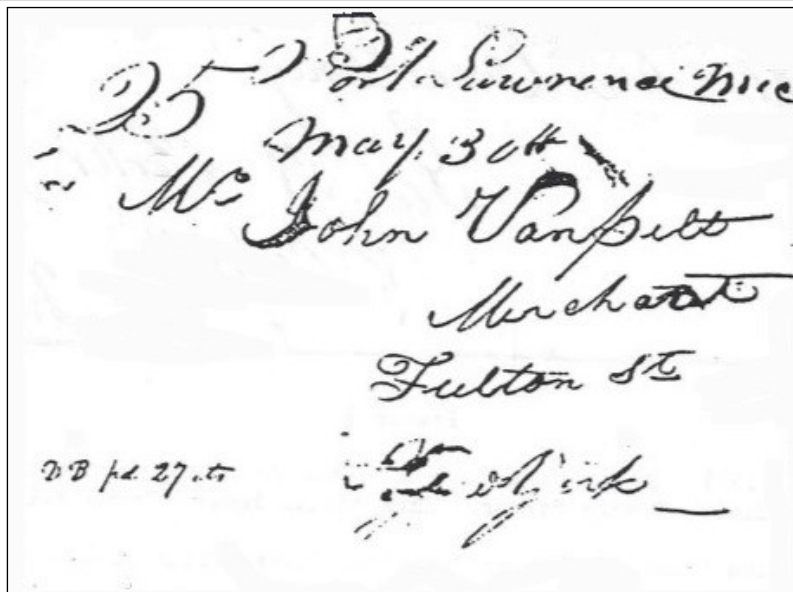 25 Port Lawrence Mic
May 30th
Mr John VanPelt
Merchant
Fulton St
York
DB pd. 27 cts